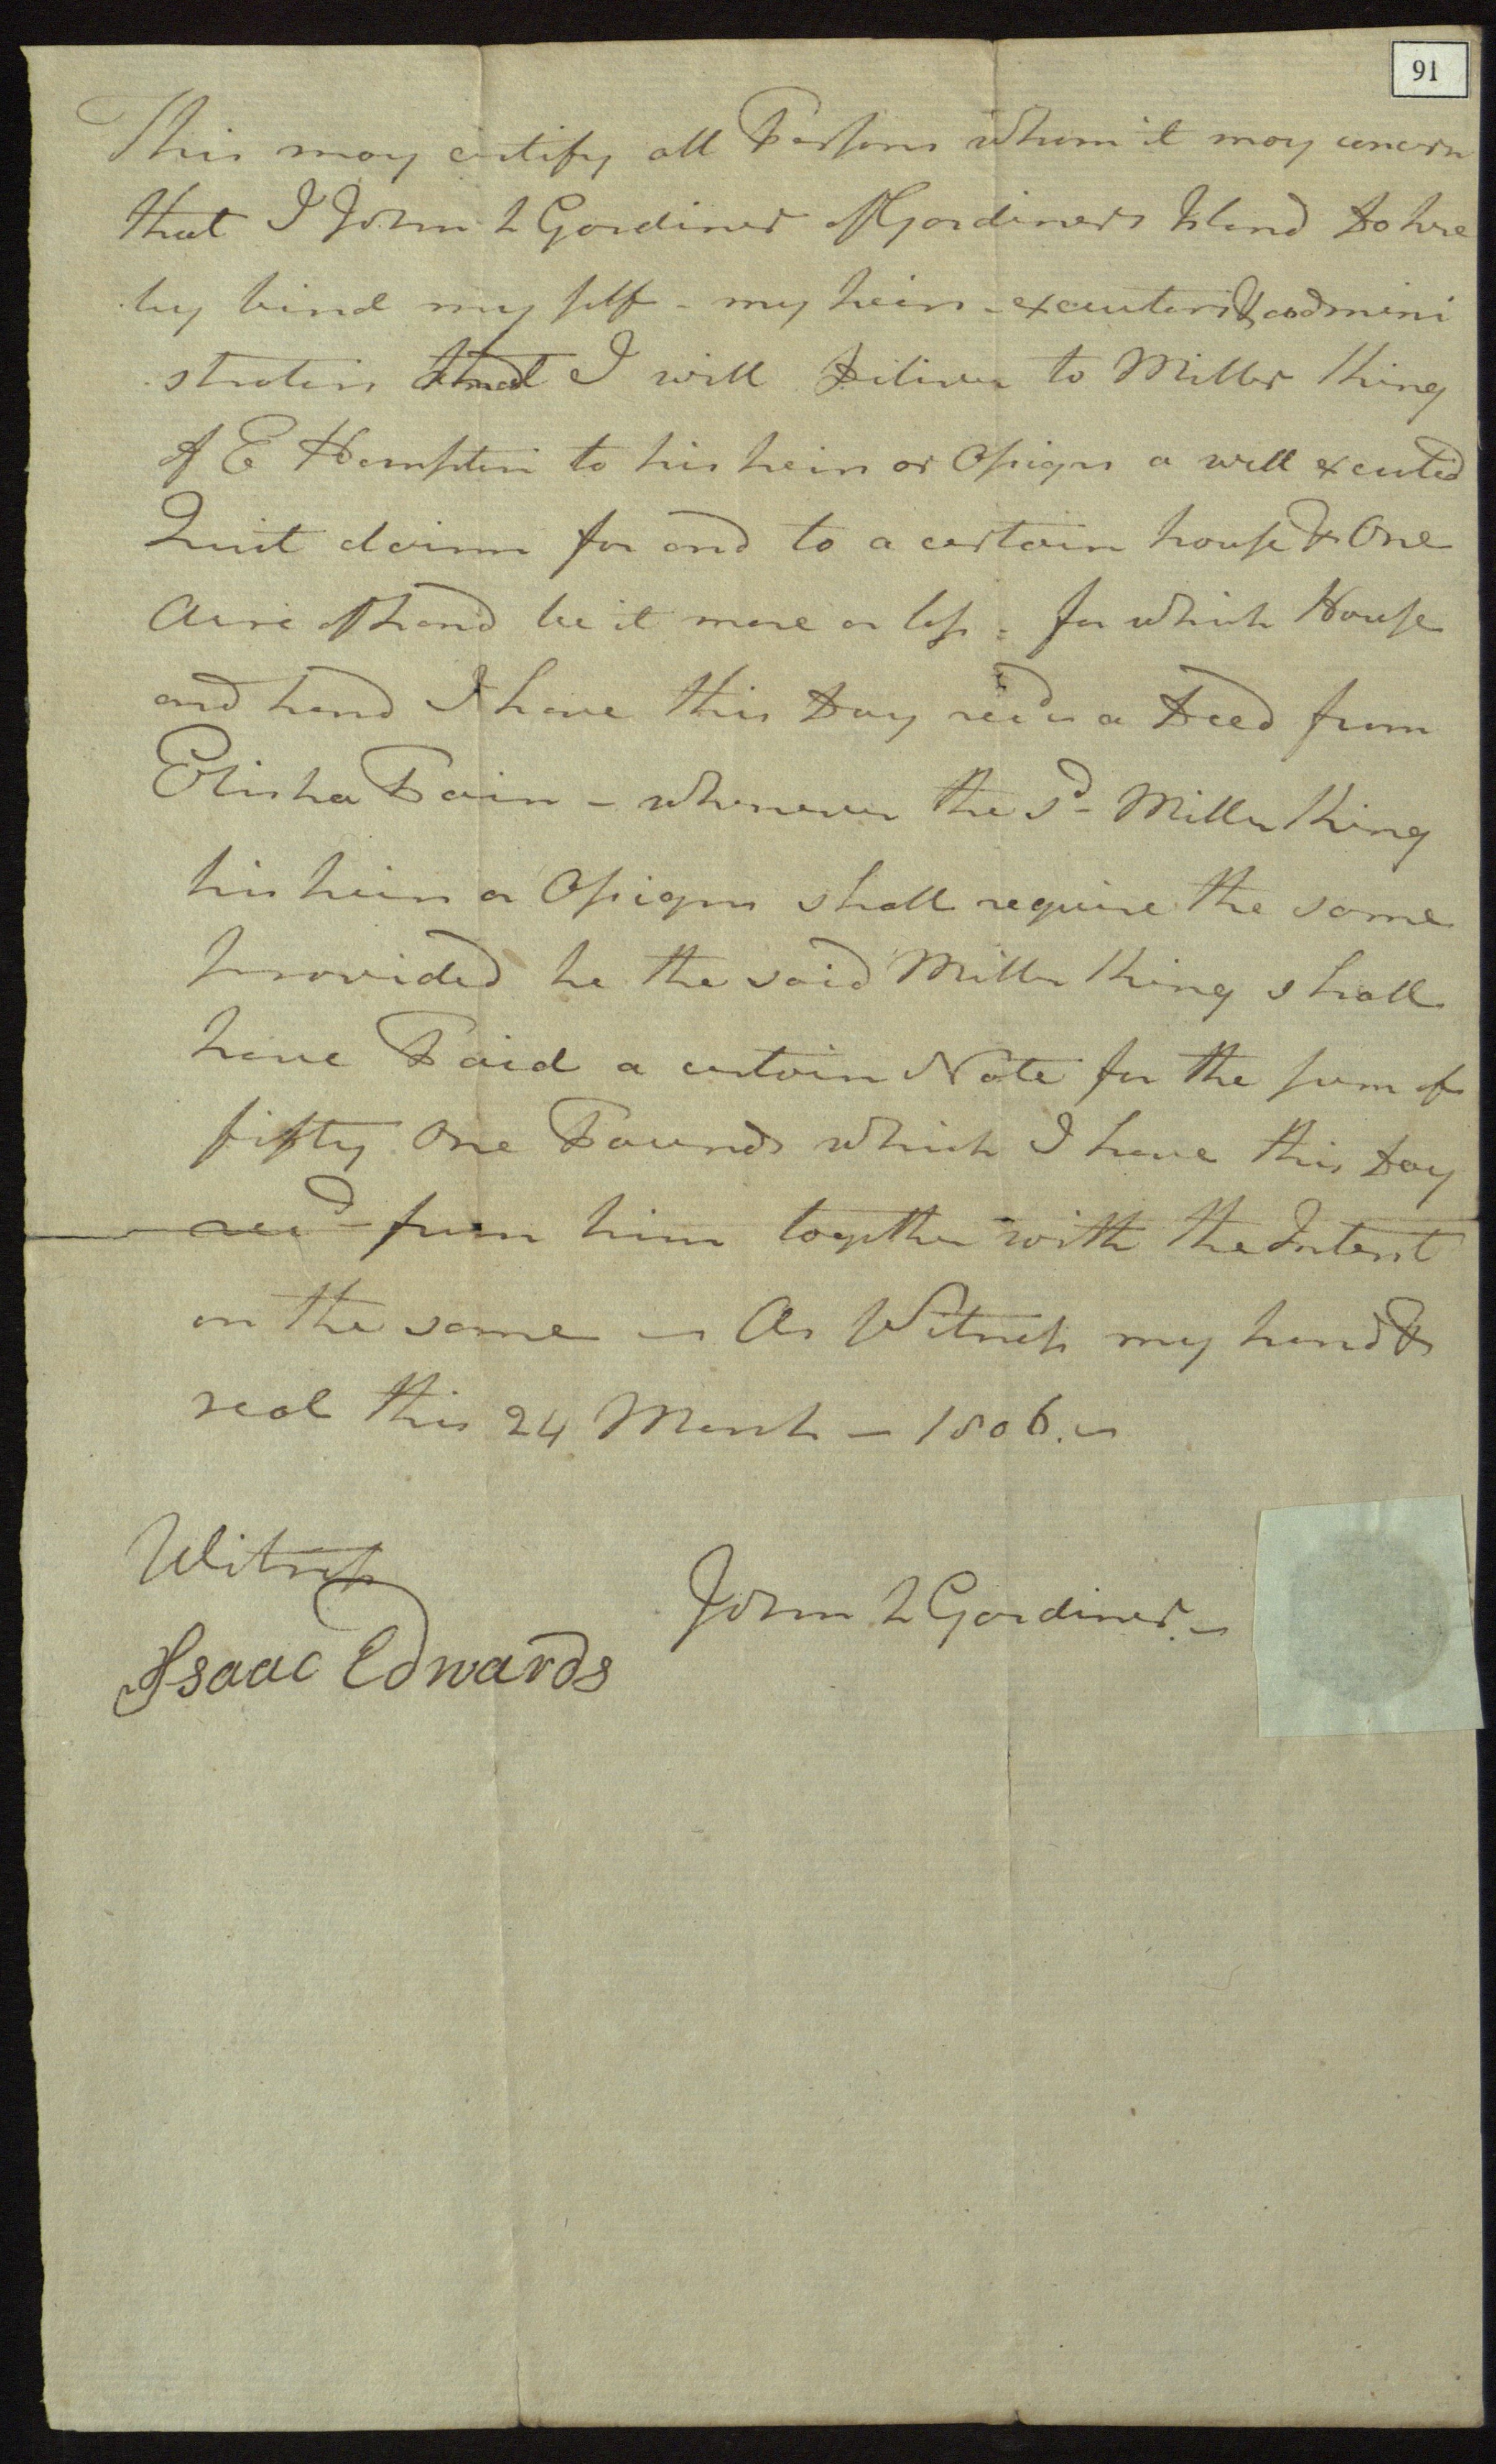 91
This may certify all Persons whom it may concern
that I John L Gardiner of Gardiners Island do here
by bind my self - my heirs - executors & admini
strators that I will Deliver to Miller
of E Hampton to his heirs or Assigns a well executed
Quit claim for and to a certain house & One
Acre of Land be it more or less = for which House
and Land I have this Day recd a Deed from
Elisha Pain - whenever the sd - Miller
his heirs or Assigns shall require the same
provided he the said Miller shall
have Paid a certain Note for the sum of
fifty One Pounds which I have this Day
recd - from him together with the Interest
on the same - As Witness my hand &
seal this 24 March - 1806. -
Witness
John L Gardiner. -
Isaac Edwards